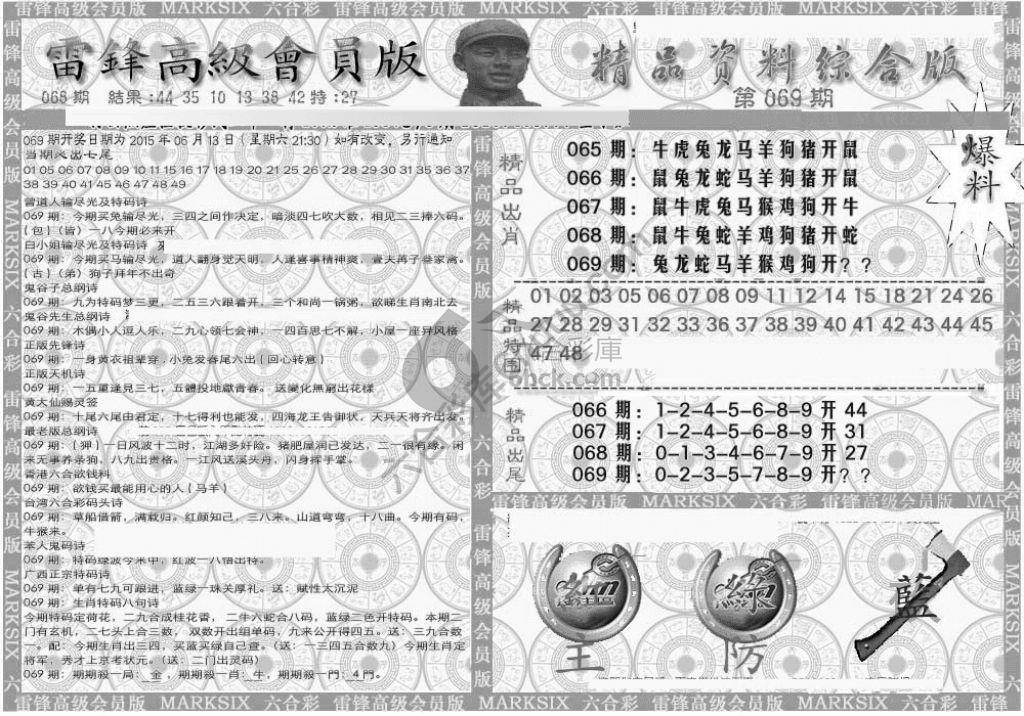 雷锋高级会员版 MARKSIX 六合彩 雷锋高级会员版 MARKSIX 六合彩 雷锋高级会员版 MARKSIX 六合彩 雷锋
雷鋒高級會員版
精品资料综合版
068期 結果:44 35 10 13 38 42特:27
第069期
069期开奖日期为2015年06月13日(星期六21:30)如有改变,另行通知
当期必出七尾
01 05 06 07 08 09 10 11 15 16 17 18 19 20 21 25 26 27 28 29 30 31 35 36 37
38 39 40 41 45 46 47 48 49
曾道人输尽光及特码诗
069期:今期买兔输尽光,三四之间作决定,暗淡四七吹大数,相见二三捧六码。
(包)(皆)一八今期必来开
白小姐输尽光及特码诗
069期:今期买马输尽光,道人翻身觉天明,人逢喜事精神爽,壹夫再子叁家离。
(古)(弟)狗子拜年不出奇
鬼谷子总纲诗
069期:九为特码梦三更,二五三六跟着开,三个和尚一锅粥,欲睇生肖南北去
鬼谷先生总纲诗
069期:木偶小人逗人乐,二九心领七会神,一四百思七不解,小屋一座异风格
正版先锋诗
069期:一身黄衣祖辈穿,小兔发春尾六出(回心转意)
正版天机诗
069期:一五重逢見三七,五體投地獻青春。送變化無窮出花樣
黄大仙赐灵签
069期:十尾六尾由君定,十七得利也能发,四海龙王告御状,天兵天将齐出发。
最老版总纲诗
069期:(狎)一日风波十二时,江湖多好险。猪肥屋润已发达,二一很有缘。闲
来无事养条狗,八九出贵格。一江风送溪头舟,闪身挥手掌。
香港六合欲钱料
069期:欲钱买最能用心的人(马羊)
台湾六合彩码头诗
069期:草船借箭,满载归。红颜知己,三八来。山道弯弯,十八曲。今期有码,
牛猴来。
笨人鬼码诗
069期:特码绿波今来中,红波一八悟出特。
广西正宗特码诗
069期:单有七九可跟进,蓝绿一珠关厚礼。送:赋性大沉泥
069期:生肖特码八句诗
今期特码定荷花,二九合成桂花香,二牛六蛇合八码,蓝绿二色开特码。本期二
门有玄机,二七头上合三数,双数开出组单码,九来公开得四五。送:三九合数
一。配:今期生肖出三四,买蓝买绿自己查。(送:一三四五合数九)今期生肖定
将军,秀才上京考状元。(送:二门出灵码)
069期:期期殺一局:金,期期殺一肖:牛,期期殺一門:4門。
精品出肖
065期:牛虎兔龙马羊狗猪开鼠
066期:鼠兔龙蛇马羊狗猪开鼠
067期:鼠牛虎兔马猴鸡狗开牛
068期:鼠牛兔蛇羊鸡狗猪开蛇
069期:兔龙蛇马羊猴鸡狗开??
爆料
精品特围
01 02 03 05 06 07 08 09 11 12 14 15 18 21 24 26
27 28 29 31 32 33 36 37 38 39 40 41 42 43 44 45
47 48
精品出尾
066期:1-2-4-5-6-8-9开44
067期:1-2-4-5-6-8-9开31
068期:0-1-3-4-6-7-9开27
069期:0-2-3-5-7-8-9开??
雷锋高级会员版 MARKSIX 六合彩 雷锋高级会员版
主
綠
防
藍
雷锋高级会员版 MARKSIX 六合彩 雷锋高级会员版 MARKSIX 六合彩 雷锋高级会员版 MARKSIX 六合彩 雷锋